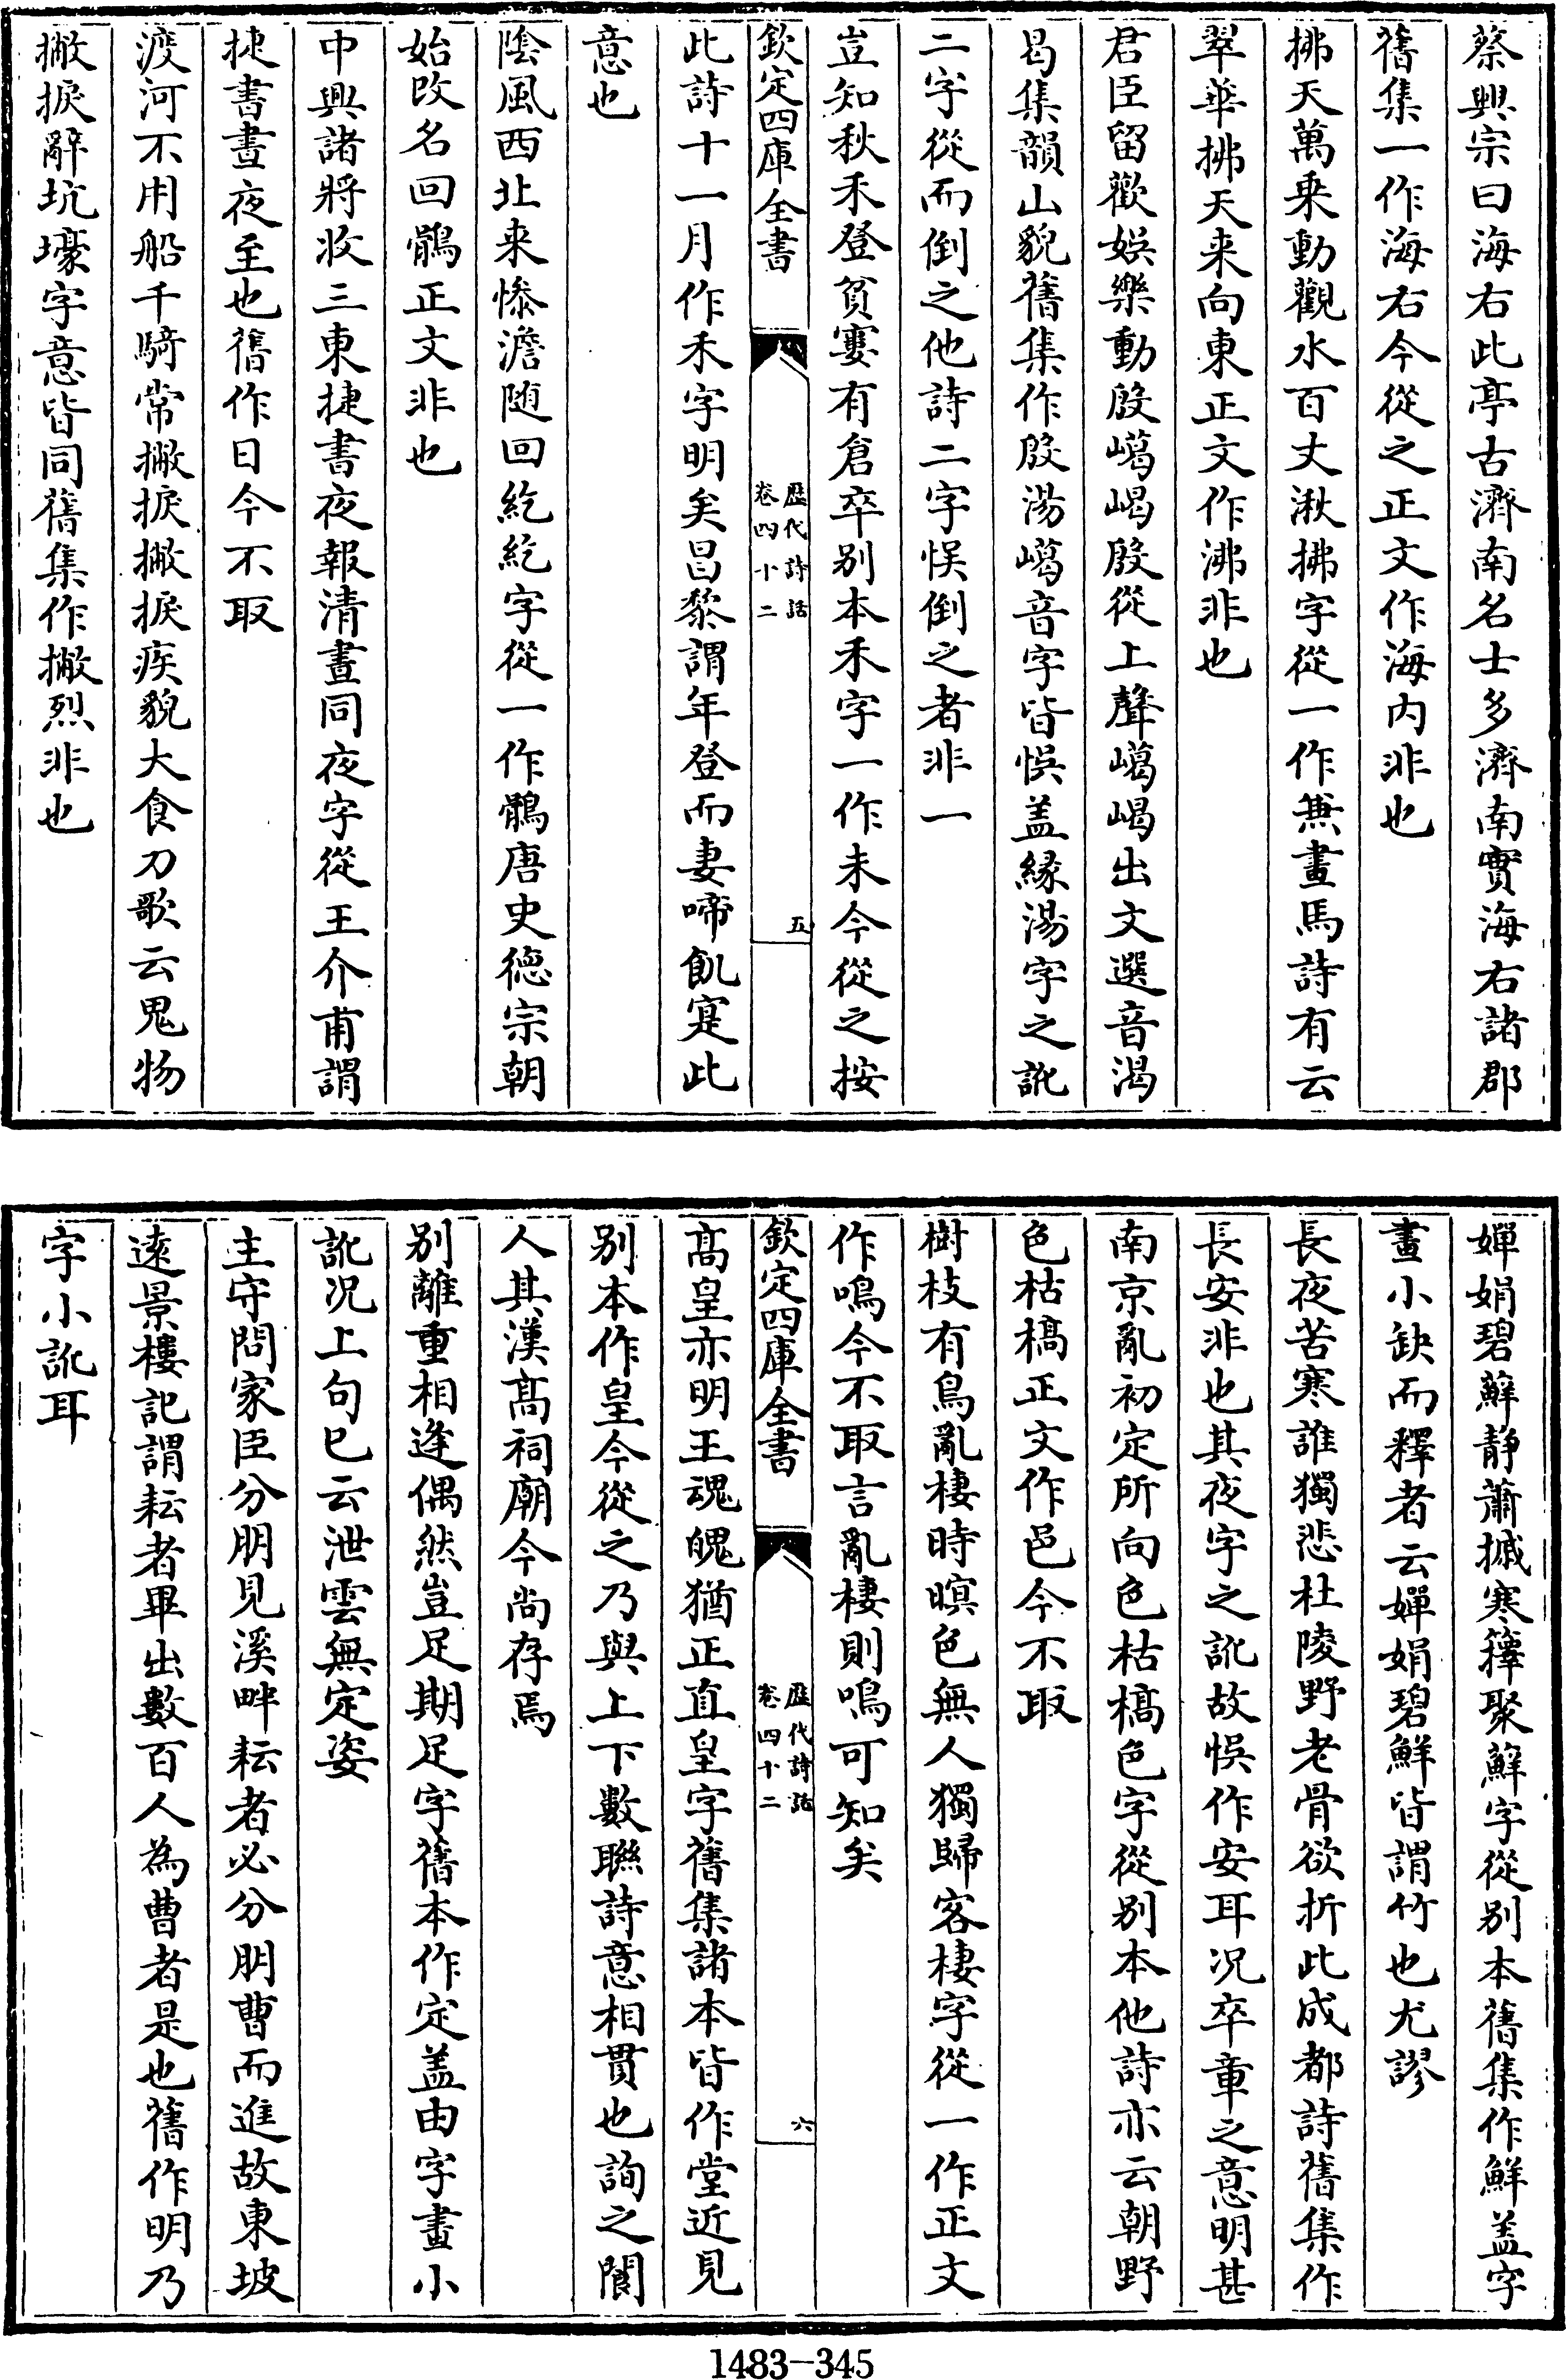 蔡興宗曰海右此亭古濟南名士多濟南實海右諸郡
舊集一作海右今從之正文作海内非也
拂天萬乗動觀水百丈湫拂字從一作無畫馬詩有云
翠華拂天来向東正文作沸非也
君臣留歡娯樂動殷嶱嵑殷從上聲嶱嵑出文選音渴
曷集韻山貌舊集作殷湯嶱音字皆悮盖緣湯字之訛
二字從而倒之他詩二字悮倒之者非一
豈知秋禾登貧窶有倉卒别本禾字一作未今從之按
欽定四庫全書
歴代詩話
卷四十二
五
此詩十一月作禾字明矣昌黎謂年登而妻啼飢寔此
意也
陰風西北来惨澹随回紇紇字從一作鶻唐史徳宗朝
始改名回鶻正文非也
中興諸將收三東捷書夜報清晝同夜字從王介甫謂
捷書晝夜至也舊作日今不取
渡河不用船千騎常撇捩撇捩疾貌大食刀歌云鬼物
撇捩辭坑壕字意皆同舊集作撇烈非也
嬋娟碧蘚静蕭摵寒籜聚蘚字從别本舊集作鮮盖字
畫小缺而釋者云嬋娟碧鮮皆謂竹也尤謬
長夜苦寒誰獨悲杜陵野老骨欲折此成都詩舊集作
長安非也其夜字之訛故悮作安耳况卒章之意明甚
南京亂初定所向色枯槁色字從别本他詩亦云朝野
色枯槁正文作邑今不取
樹枝有鳥亂棲時暝色無人獨歸客棲字從一作正文
作鳴今不取言亂棲則鳴可知矣
欽定四庫全書
歴代詩話
卷四十二
六
髙皇亦明王魂魄猶正直皇字舊集諸本皆作堂近見
别本作皇今從之乃與上下數聯詩意相貫也詢之閬
人其漢髙祠廟今尚存焉
别離重相逢偶然豈足期足字舊本作定盖由字畫小
訛况上句已云泄雲無定姿
主守問家臣分朋見溪畔耘者必分朋曹而進故東坡
遠景樓記謂耘者畢出數百人為曹者是也舊作明乃
字小訛耳
1483-345